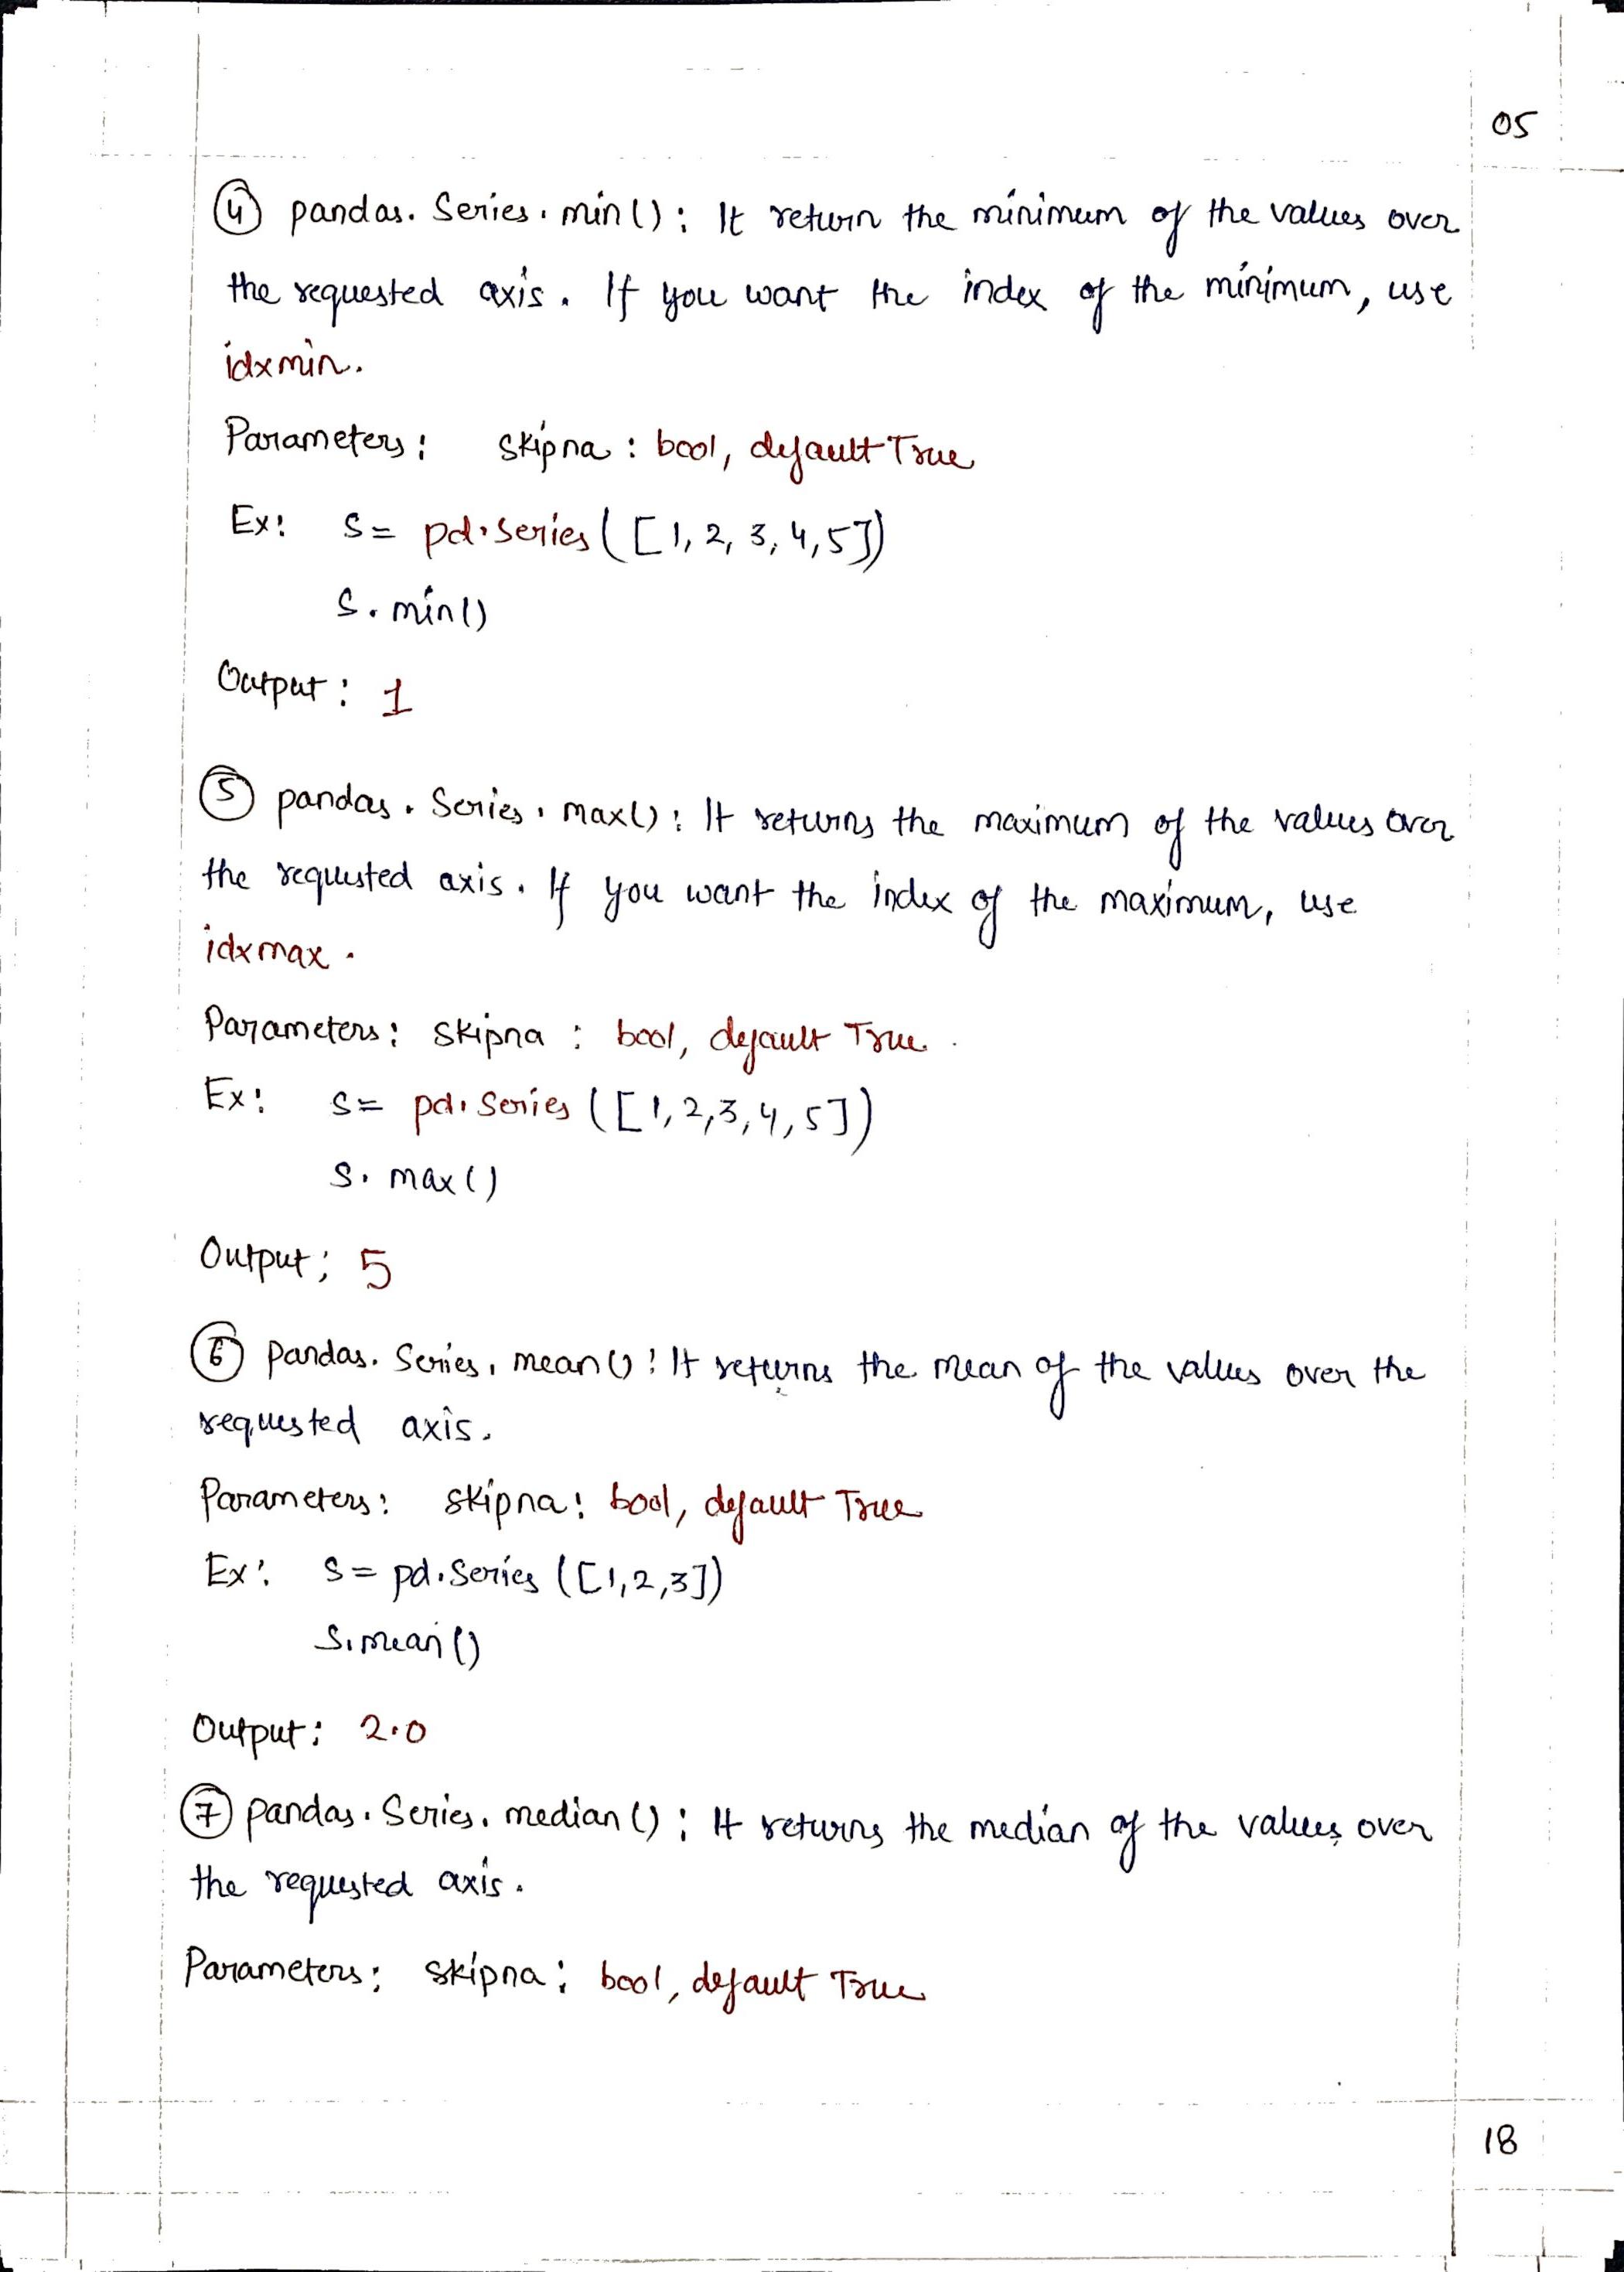 05
④ pandas. Series. min(): It return the minimum of the values over
the requested axis. If you want the index of the minimum, use
idxmin.
Parameters: skipna : bool, default True
Ex: S= pd.series([1, 2, 3, 4, 5])
S. min()
Output: 1
⑤ pandas. Series. max(): It returns the maximum of the values over
the requested axis. If you want the index of the maximum, use
idxmax.
Parameters: skipna : bool, default True.
Ex: S= pd. Series ([1, 2, 3, 4, 5])
S. max()
Output: 5
⑥ pandas. Series. mean(): It returns the mean of the values over the
requested axis.
Parameters: skipna: bool, default True
Ex: S= pd. Series ([1,2,3])
S. mean()
Output: 2.0
⑦ pandas. Series. median(): It returns the median of the values over
the requested axis.
Parameters: skipna: bool, default True
18